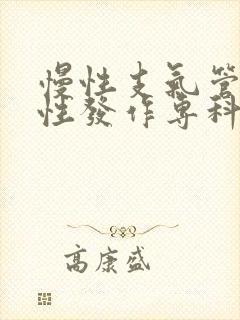 慢性支氣管
性發作專科
高康盛